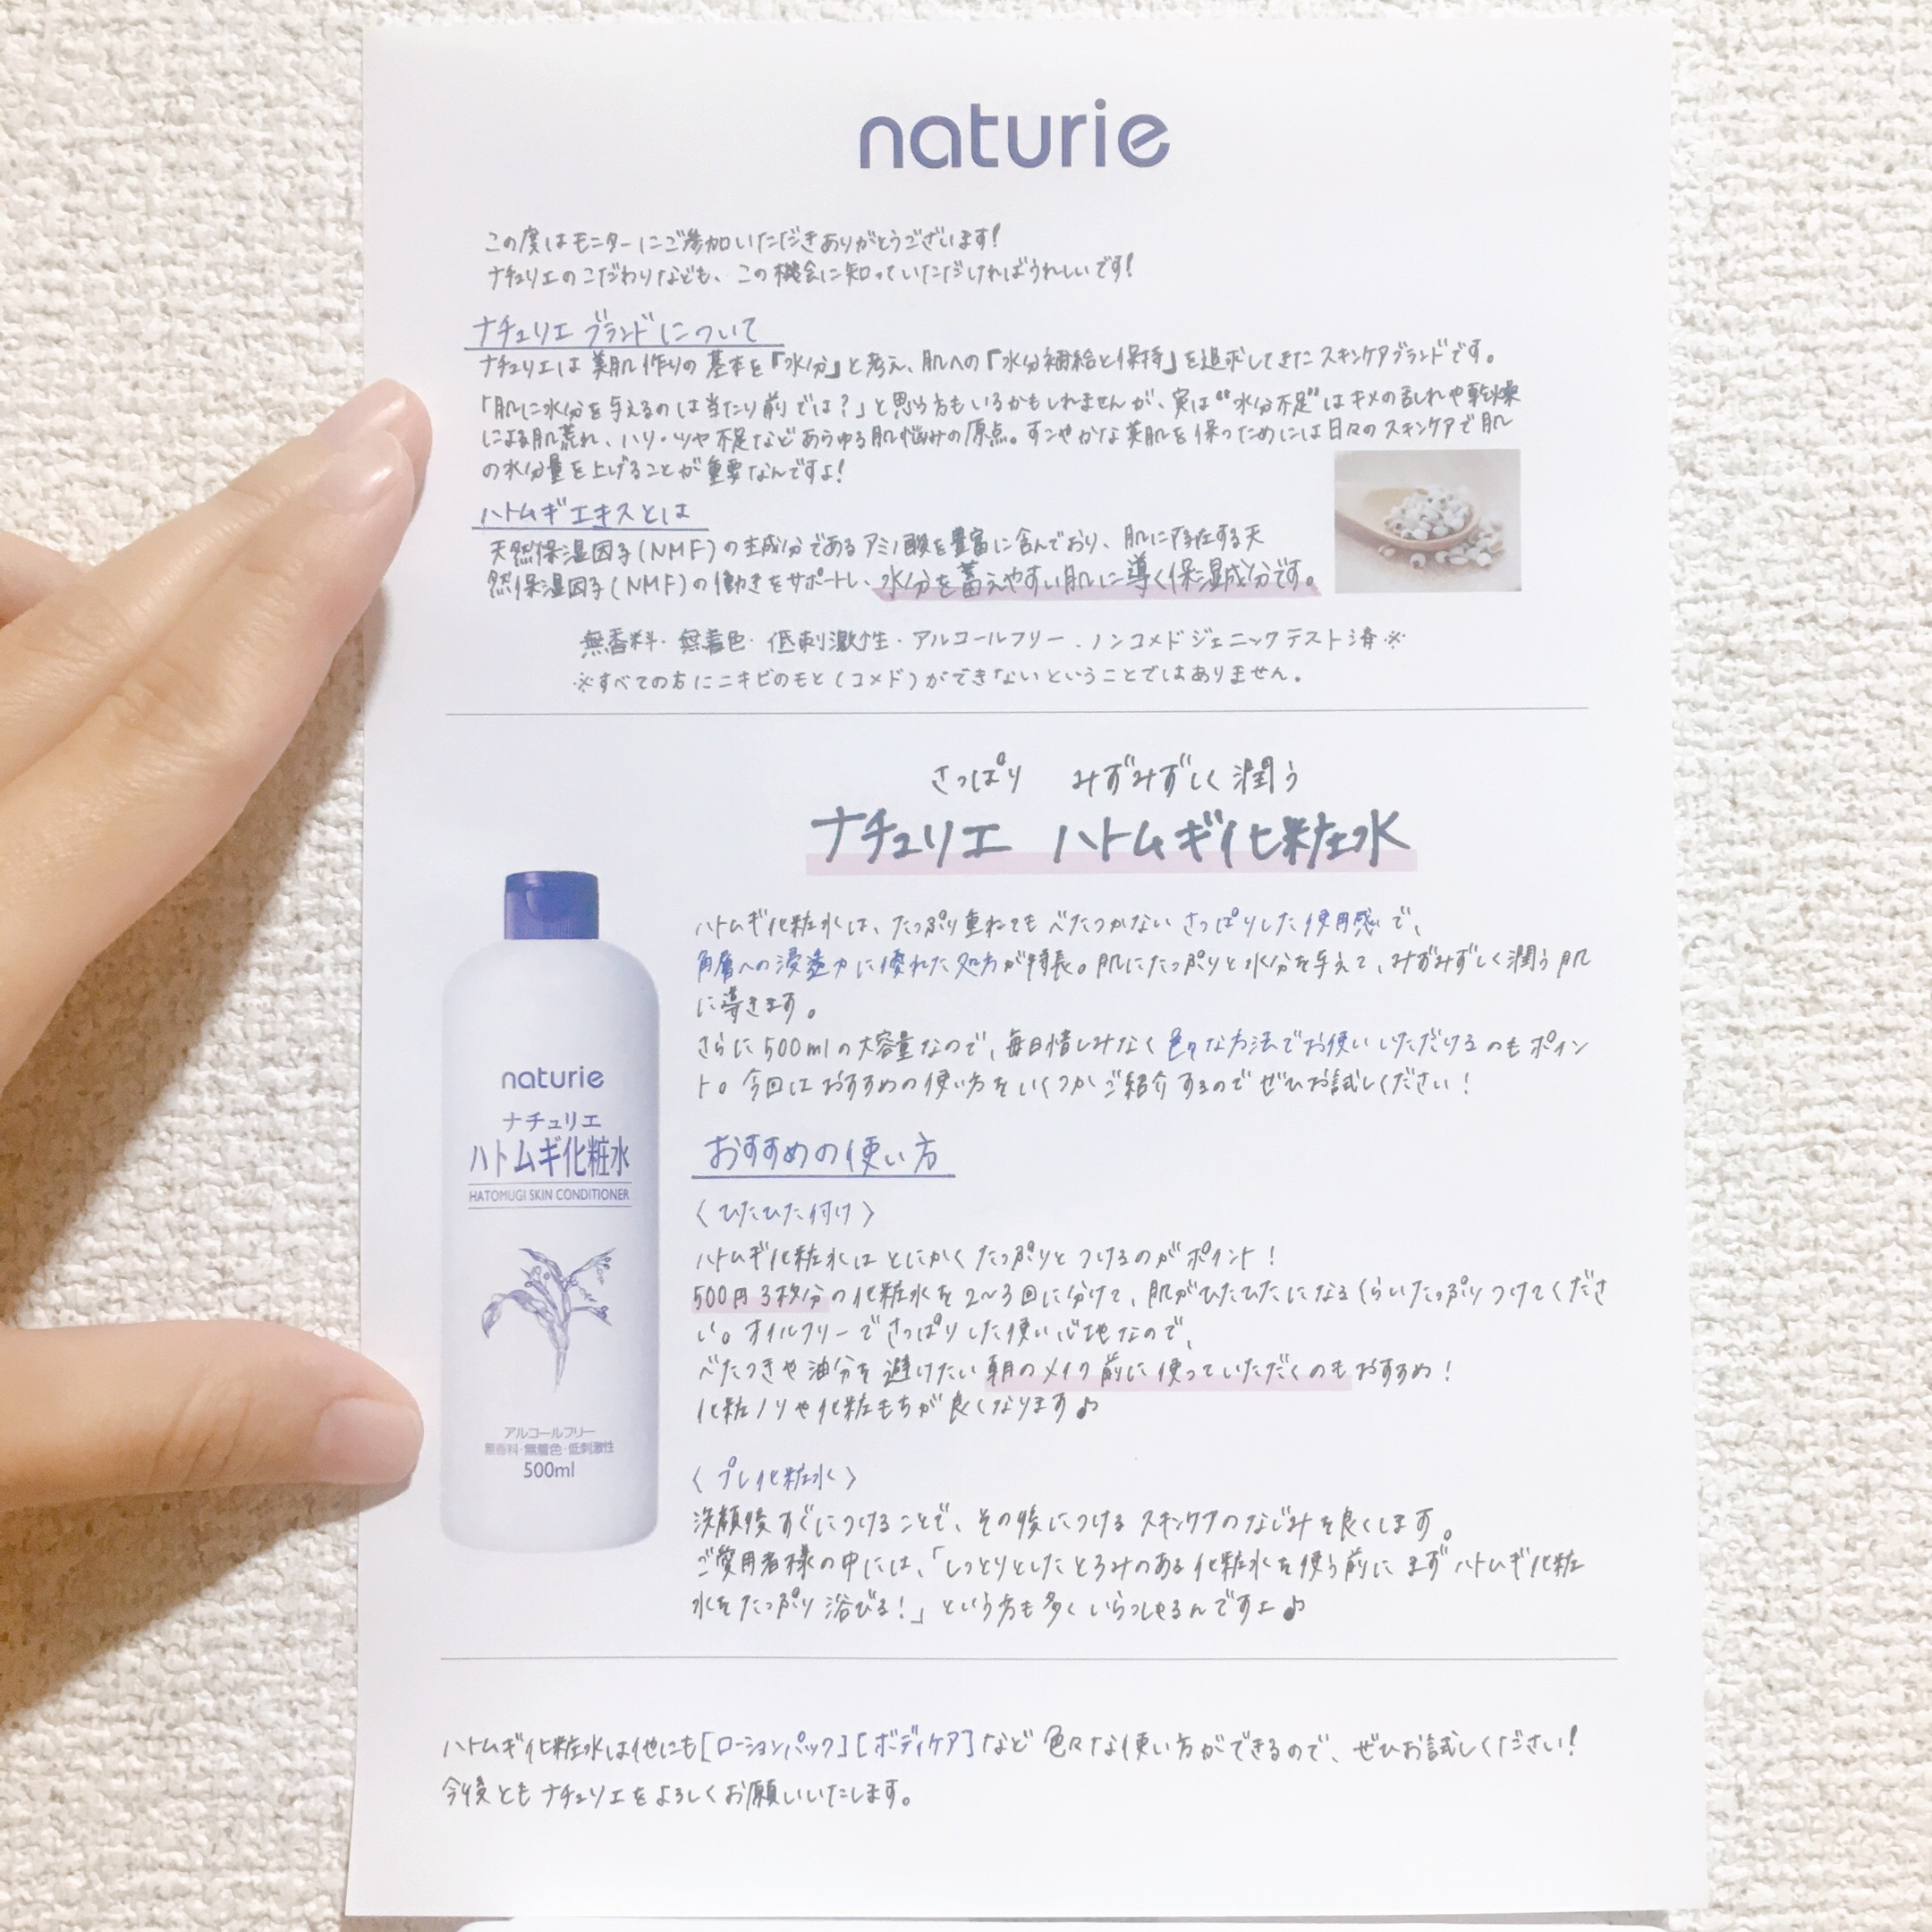 naturie
この度はモニターにご参加いただきありがとうございます!
ナチュリエのこだわりなども、この機会に知っていただければうれしいです!
ナチュリエ ブランドについて
ナチュリエは美肌作りの基本を「水分」と考え、肌への「水分補給と保持」を追求してきたスキンケアブランドです。
「肌に水分を与えるのは当たり前では?」と思う方もいるかもしれませんが、実は“水分不足”はキメの乱れや乾燥
による肌荒れ、ハリ・ツヤ不足などあらゆる肌悩みの原点。すこやかな美肌を保つためには日々のスキンケアで肌
の水分量を上げることが重要なんですよ!
ハトムギエキスとは
天然保湿因子(NMF)の主成分であるアミノ酸を豊富に含んでおり、肌に存在する天
然保湿因子(NMF)の働きをサポートし、水分を蓄えやすい肌に導く保湿成分です。
無香料・無着色・低刺激性・アルコールフリー・ノンコメドジェニックテスト済※
※すべての方にニキビのもと(コメド)ができないということではありません。
さっぱり みずみずしく潤う
ナチュリエ ハトムギ化粧水
ハトムギ化粧水は、たっぷり重ねてもべたつかないさっぱりした使用感で、
角層への浸透力に優れた処方が特長。肌にたっぷりと水分を与えて、みずみずしく潤う肌
に導きます。
さらに500mlの大容量なので、毎日惜しみなく色々な方法でお使いいただけるのもポイン
ト。今回はおすすめの使い方をいくつかご紹介するのでぜひお試しください!
おすすめの使い方
〈ひたひた付け〉
ハトムギ化粧水はとにかくたっぷりとつけるのがポイント!
500円3枚分の化粧水を2〜3回に分けて、肌がひたひたになるくらいたっぷりつけてくださ
い。オイルフリーでさっぱりした使い心地なので、
べたつきや油分を避けたい朝のメイク前に使っていただくのもおすすめ!
化粧ノリや化粧もちが良くなります♪
〈プレ化粧水〉
洗顔後すぐにつけることで、その後につけるスキンケアのなじみを良くします。
ご愛用者様の中には、「しっとりとしたとろみのある化粧水を使う前にまずハトムギ化粧
水をたっぷり浴びる!」という方も多くいらっしゃるんですよ♪
naturie
ナチュリエ
ハトムギ化粧水
HATOMUGI SKIN CONDITIONER
アルコールフリー
無香料・無着色・低刺激性
500ml
ハトムギ化粧水は他にも[ローションパック][ボディケア]など色々な使い方ができるので、ぜひお試しください!
今後ともナチュリエをよろしくお願いいたします。